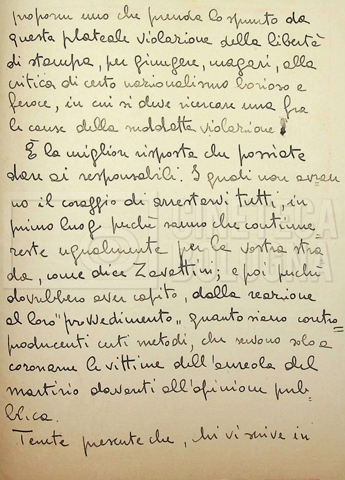 proporvi uno che prenda lo spunto da
questa plateale violazione della libertà
di stampa, per giungere, magari, alla
critica di certo nazionalismo borioso e
feroce, in cui si deve ricercare una fra
le cause della suddetta violazione.
È la miglior risposta che possiate
dare ai responsabili. I quali non avran-
no il coraggio di arrestarvi tutti, in
primo luogo perchè sanno che continue-
reste ugualmente per la vostra stra-
da, come dice Zavattini; e poi perchè
dovrebbero aver capito, dalla reazione
al loro "provvedimento„ quanto siano contro-
producenti certi metodi, che servono solo a
coronare le vittime dell'aureola del
martirio davanti all'opinione pub-
blica.
Tenete presente che, chi vi scrive in
CINETECA
BOLOGNA